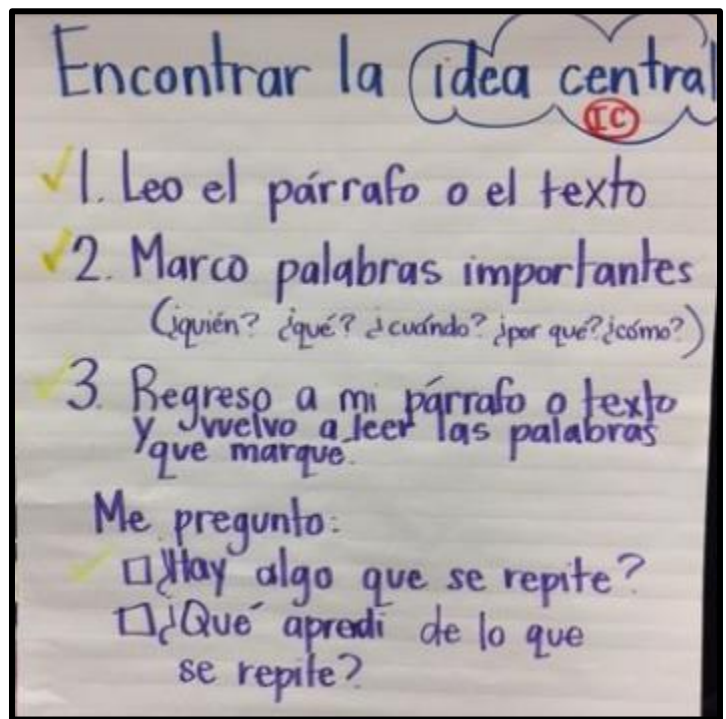 Encontrar la idea central
IC
1. Leo el párrafo o el texto
2. Marco palabras importantes
(¿quién? ¿qué? ¿cuándo? ¿por qué? ¿cómo?)
3. Regreso a mi párrafo o texto
y vuelvo a leer las palabras
que marqué.
Me pregunto:
¿Hay algo que se repite?
¿Qué apredí de lo que
se repite?